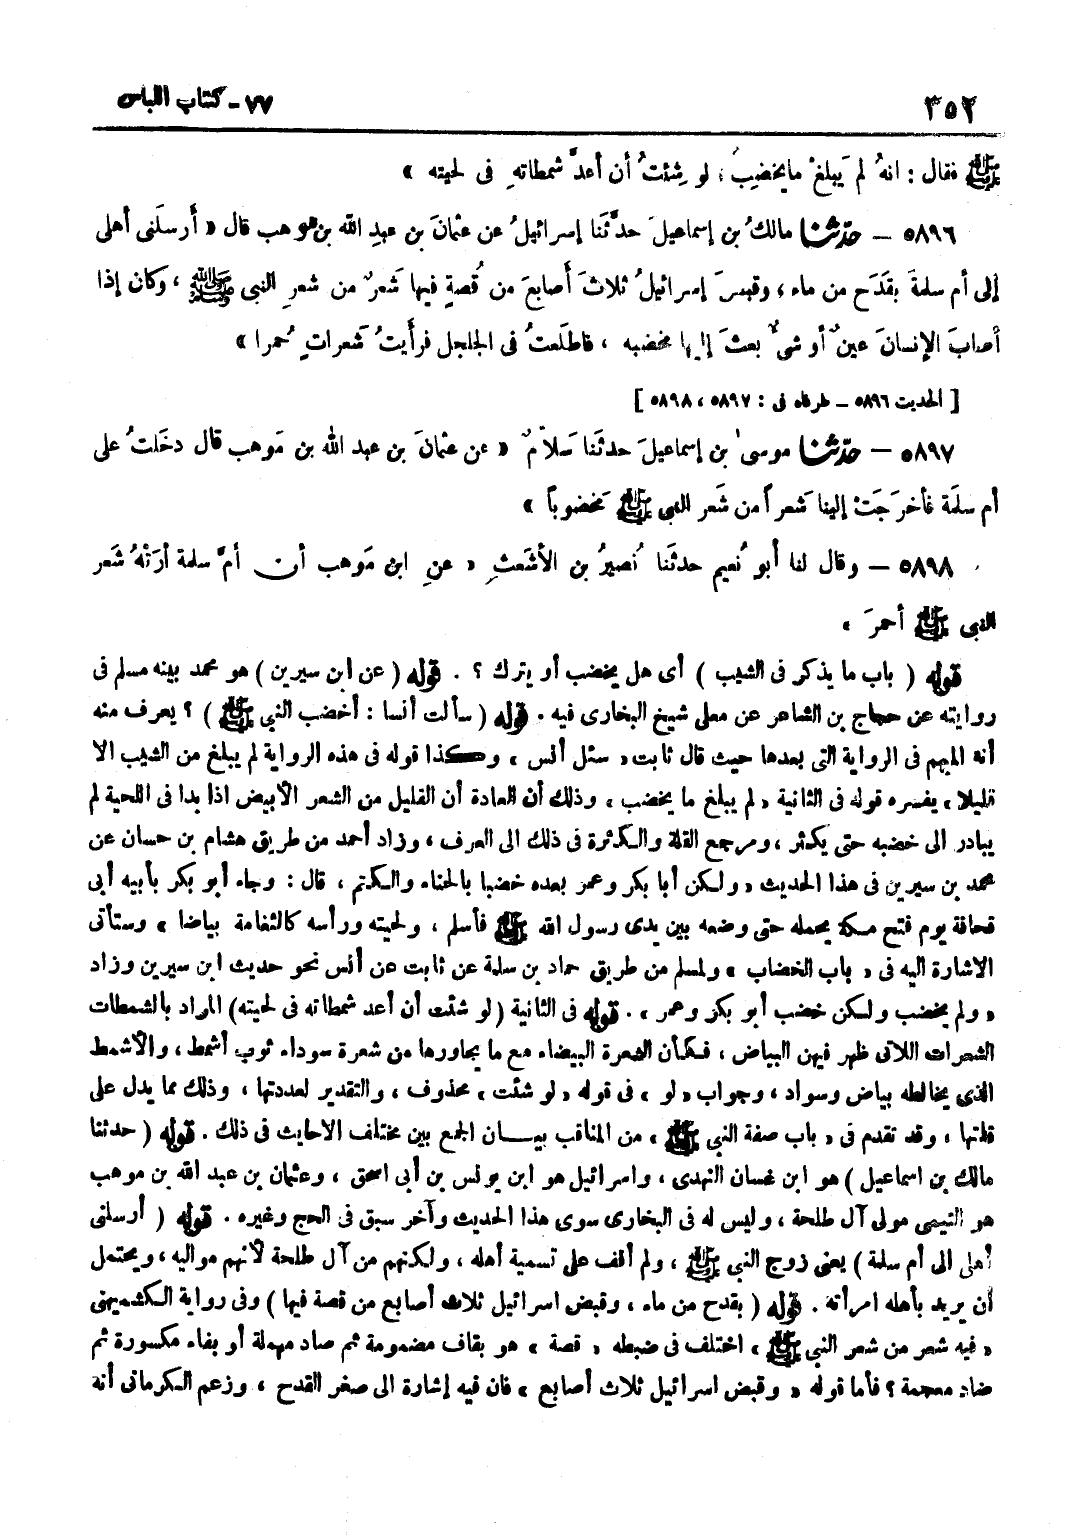 ٣٥٢
٧٧ - كتاب اللباس
ﷺ فقال : انهُ لم يَبلغْ مايخضِبُ ، لو شِئتُ أن أعدَّ شمطاتهِ فى لحيته »
٥٨٩٦ – حدّثنا مالكُ بن إسماعيلَ حدَّثَنا إسرائيلُ عن عثمانَ بن عبدِ الله بن موهب قال « أرسلَنى أهلى
إلى أم سلمةَ بقَدَح من ماء ، وقبضَ إسرائيلُ ثلاثَ أصابعَ من قُصةٍ فيها شَعرٌ من شعرِ النبى ﷺ ، وكان إذا
أصابَ الإنسانَ عينٌ أو شىٌ بعثَ إليها مخضبه ، فاطلَعتُ فى الجلجل فرأَيتُ شَعراتٍ ُحمرا »
[ الحديث ٥٨٩٦ – طرفاه فى : ٥٨٩٧ ، ٥٨٩٨ ]
٥٨٩٧ – حدّثنا موسىٰ بن إسماعيلَ حدثَنا سَلامٌ « عن عثمانَ بن عبد الله بن مَوهب قال دخلتُ على
أم سلمَة فأخرجَتْ إلينا شعراً من شَعر النبى ﷺ مَخضوباً »
٥٨٩٨ – وقال لنا أبو نُعيم حدثَنا نُصيرُ بن الأشعَثِ « عنِ ابن مَوهب أن أمَّ سلمة أرَتْهُ شَعر
النبى ﷺ أحمرَ »
قوله ( باب ما يذكر فى الشيب ) أى هل يخضب أو يترك ؟ . قوله ( عن ابن سيرين ) هو محمد بينه مسلم فى
روايته عن حجاج بن الشاعر عن معلى شيخ البخارى فيه . قوله ( سألت أنسا : أخضب النبى ﷺ ) ؟ يعرف منه
أنه المبهم فى الرواية التى بعدها حيث قال ثابت « سئل أنس » وكذا قوله فى هذه الرواية لم يبلغ من الشيب الا
قليلا ، يفسره قوله فى الثانية « لم يبلغ ما يخضب » وذلك أن العادة أن القليل من الشعر الأبيض اذا بدا فى اللحية لم
يبادر الى خضبه حتى يكثر ، ومرجع القلة والكثرة فى ذلك الى العرف ، وزاد أحمد من طريق هشام بن حسان عن
محمد بن سيرين فى هذا الحديث « ولكن أبا بكر وعمر بعده خضبا بالحناء والكتم ، قال : وجاء أبو بكر بأبيه أبى
قحافة يوم فتح مكة يحمله حتى وضعه بين يدى رسول الله ﷺ فأسلم ، ولحيته ورأسه كالثغامة بياضا » وستأتى
الاشارة اليه فى « باب الخضاب » ولمسلم من طريق حماد بن سلمة عن ثابت عن أنس نحو حديث ابن سيرين وزاد
« ولم يخضب ولكن خضب أبو بكر وعمر » . قوله فى الثانية ( لو شئت أن أعد شمطاته فى لحيته ) المراد بالشمطات
الشعرات اللاتى ظهر فيهن البياض ، فكأن الشعرة البيضاء مع ما يجاورها من شعرة سوداء ثوب أشمط ، والأشمط
الذى يخالطه بياض وسواد ، وجواب « لو » فى قوله « لو شئت » محذوف ، والتقدير لعددتها ، وذلك مما يدل على
قلتها ، وقد تقدم فى « باب صفة النبى ﷺ » من المناقب بيان الجمع بين مختلف الاحاديث فى ذلك . قوله ( حدثنا
مالك بن اسماعيل ) هو ابن غسان النهدى ، واسرائيل هو ابن يونس بن أبى اسحق ، وعثمان بن عبد الله بن موهب
هو التيمى مولى آل طلحة ، وليس له فى البخارى سوى هذا الحديث وآخر سبق فى الحج وغيره . قوله ( أرسلنى
أهلى الى أم سلمة ) يعنى زوج النبى ﷺ ، ولم أقف على تسمية أهله ، ولكنهم من آل طلحة لأنهم مواليه ، ويحتمل
أن يريد بأهله امرأته . قوله ( بقدح من ماء ، وقبض اسرائيل ثلاث أصابع من قصة فيها ) وفى رواية الكشميهنى
« فيه شعر من شعر النبى ﷺ » اختلف فى ضبطه « قصة » هو بقاف مضمومة ثم صاد مهملة أو بفاء مكسورة ثم
ضاد معجمة ؟ فأما قوله « وقبض اسرائيل ثلاث أصابع » فان فيه إشارة الى صغر القدح ، وزعم الكرمانى أنه